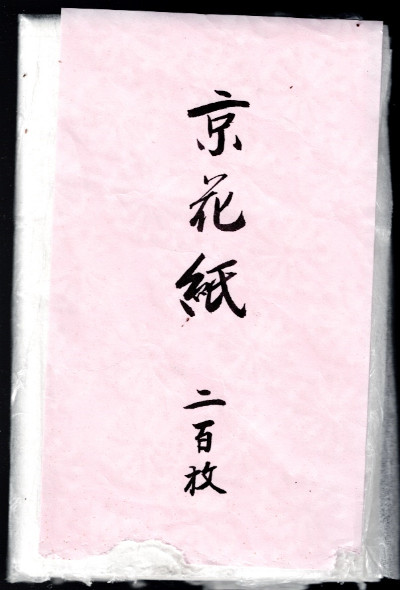 京花紙
二百枚